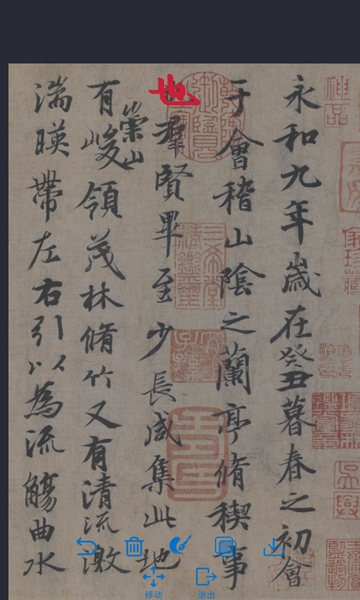 永和九年歲在癸丑暮春之初會
于會稽山陰之蘭亭脩稧事
也羣賢畢至少長咸集此地
有崇山峻領茂林脩竹又有清流激
湍暎帶左右引以為流觴曲水
移动
退出